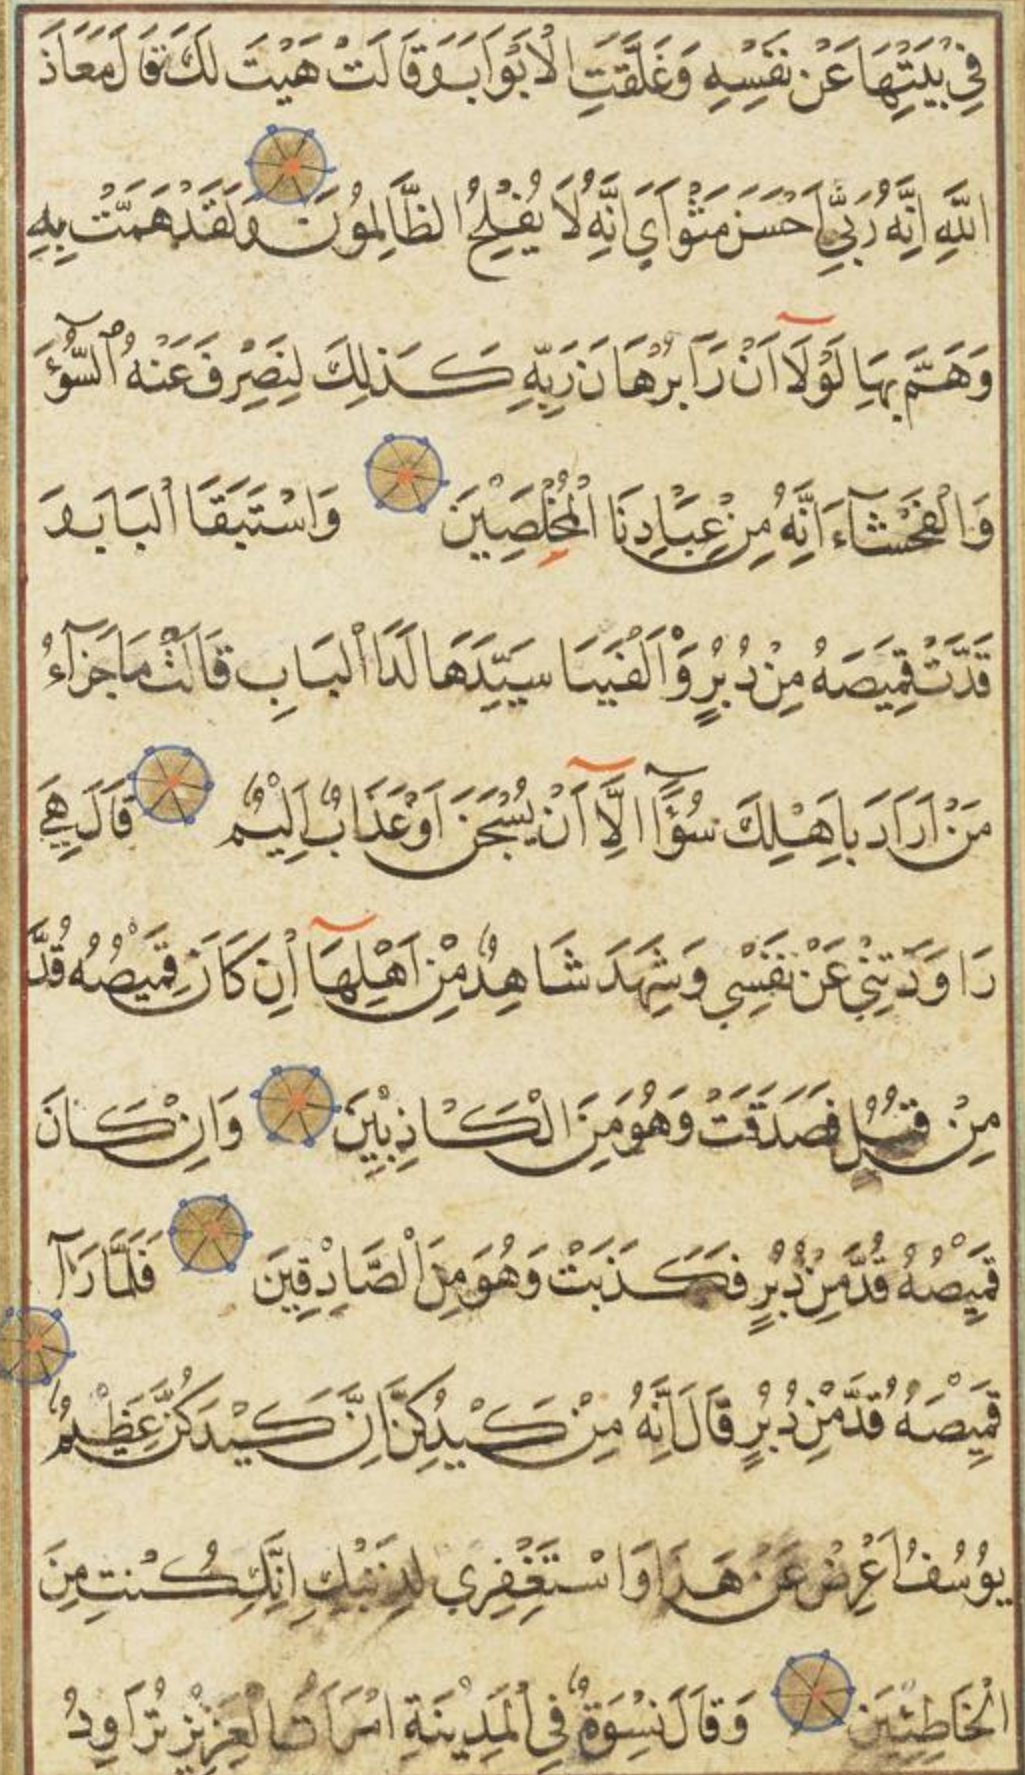 فِي بَيْتِهَا عَنْ نَفْسِهِ وَغَلَّقَتِ الْاَبْوَابَ وَقَالَتْ هَيْتَ لَكَ قَالَ مَعَاذَ
اللّٰهِ اِنَّهُ رَبِّي اَحْسَنَ مَثْوَايَ اِنَّهُ لَا يُفْلِحُ الظَّالِمُونَ وَلَقَدْ هَمَّتْ بِهِ
وَهَمَّ بِهَا لَوْلَا اَنْ رَآ بُرْهَانَ رَبِّهِ كَذٰلِكَ لِنَصْرِفَ عَنْهُ السُّوٓءَ
وَالْفَحْشَآءَ اِنَّهُ مِنْ عِبَادِنَا الْمُخْلَصِينَ وَاسْتَبَقَا الْبَابَ وَ
قَدَّتْ قَمِيصَهُ مِنْ دُبُرٍ وَاَلْفَيَا سَيِّدَهَا لَدَا الْبَابِ قَالَتْ مَا جَزَآءُ
مَنْ اَرَادَ بِاَهْلِكَ سُوٓءًا اِلَّآ اَنْ يُسْجَنَ اَوْ عَذَابٌ اَلِيمٌ قَالَ هِيَ
رَاوَدَتْنِي عَنْ نَفْسِي وَشَهِدَ شَاهِدٌ مِنْ اَهْلِهَآ اِنْ كَانَ قَمِيصُهُ قُدَّ
مِنْ قُبُلٍ فَصَدَقَتْ وَهُوَ مِنَ الْكَاذِبِينَ وَاِنْ كَانَ
قَمِيصُهُ قُدَّ مِنْ دُبُرٍ فَكَذَبَتْ وَهُوَ مِنَ الصَّادِقِينَ فَلَمَّا رَآ
قَمِيصَهُ قُدَّ مِنْ دُبُرٍ قَالَ اِنَّهُ مِنْ كَيْدِكُنَّ اِنَّ كَيْدَكُنَّ عَظِيمٌ
يُوسُفُ اَعْرِضْ عَنْ هَذَا وَاسْتَغْفِرِي لِذَنْبِكِ اِنَّكِ كُنْتِ مِنَ
الْخَاطِئِينَ وَقَالَ نِسْوَةٌ فِي الْمَدِينَةِ امْرَاَتُ الْعَزِيزِ تُرَاوِدُ